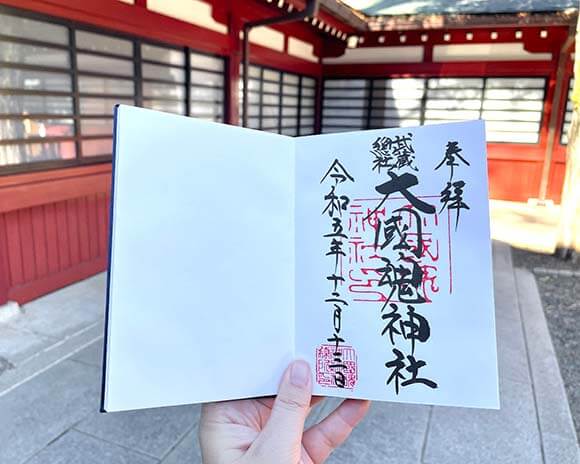 奉拝
武蔵
總社
大國魂神社
令和五年十二月十三日